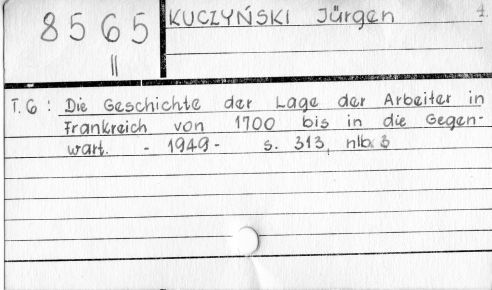 8565
II
KUCZYŃSKI Jürgen
4.
T. 6 : Die Geschichte der Lage der Arbeiter in
Frankreich von 1700 bis in die Gegen-
wart. - 1949 - s. 313, nlb. 3